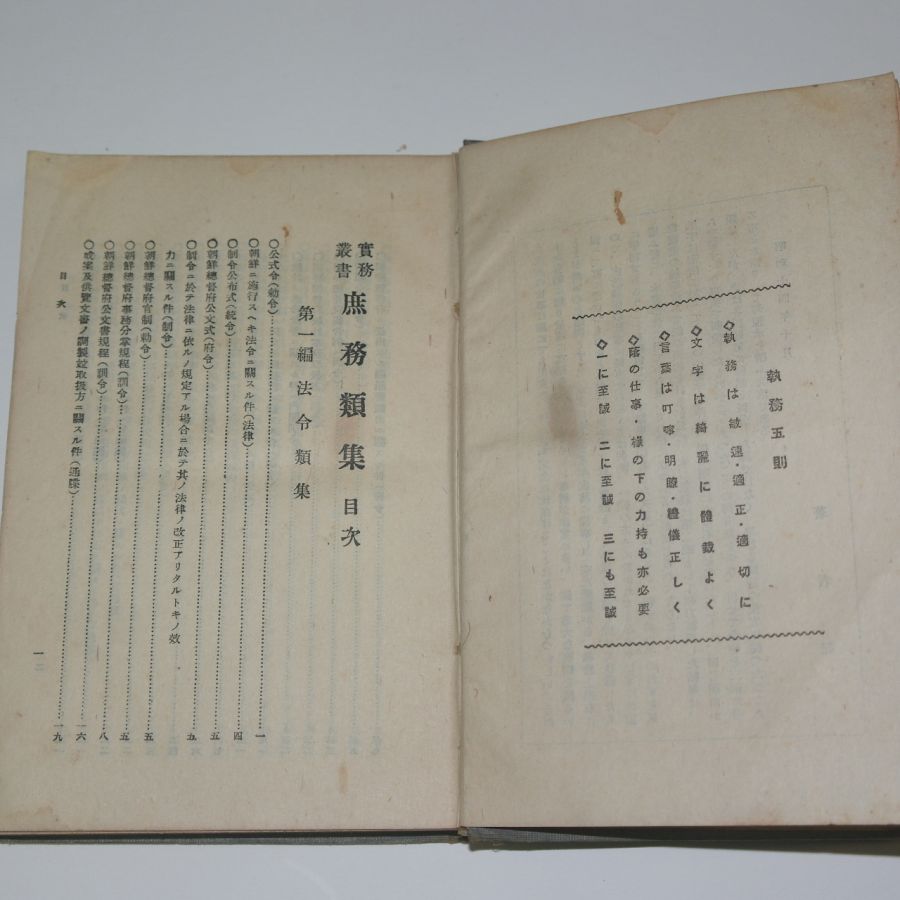 執務五則
◇執務は敏速・適正・適切に
◇文字は綺麗に體裁よく
◇言葉は叮嚀・明瞭・禮儀正しく
◇蔭の仕事・椽の下の力持も亦必要
◇一に至誠 二に至誠 三にも至誠
實務叢書 庶務類集 目次
第一編 法令類集
○公式令(勅令)……一
○朝鮮ニ施行スヘキ法令ニ關スル件(法律)……四
○制令公布式(統令)……四
○朝鮮總督府公文式(府令)……五
○制令ニ於テ法律ニ依ルノ規定アル場合ニ於テ其ノ法律ノ改正アリタルトキノ效
力ニ關スル件(制令)……五
○朝鮮總督府官制(勅令)……五
○朝鮮總督府事務分掌規程(訓令)……五
○朝鮮總督府公文書規程(訓令)……八
○成案及供覽文書ノ調製竝取扱方ニ關スル件(通牒)……一六
一九
目次
一